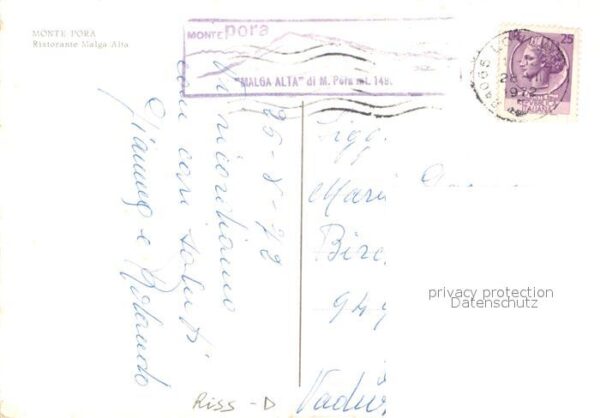 MONTE PORA
Ristorante Malga Alta
MONTE pora
"MALGA ALTA" di M. Pora mt. 149
25
24065
1972
25-8-72
Vi ricordiamo
con cari saluti
Gianna e Rolando
Sigg.
Mari
Birc
949
Vaduz
privacy protection
Datenschutz
Riss - D